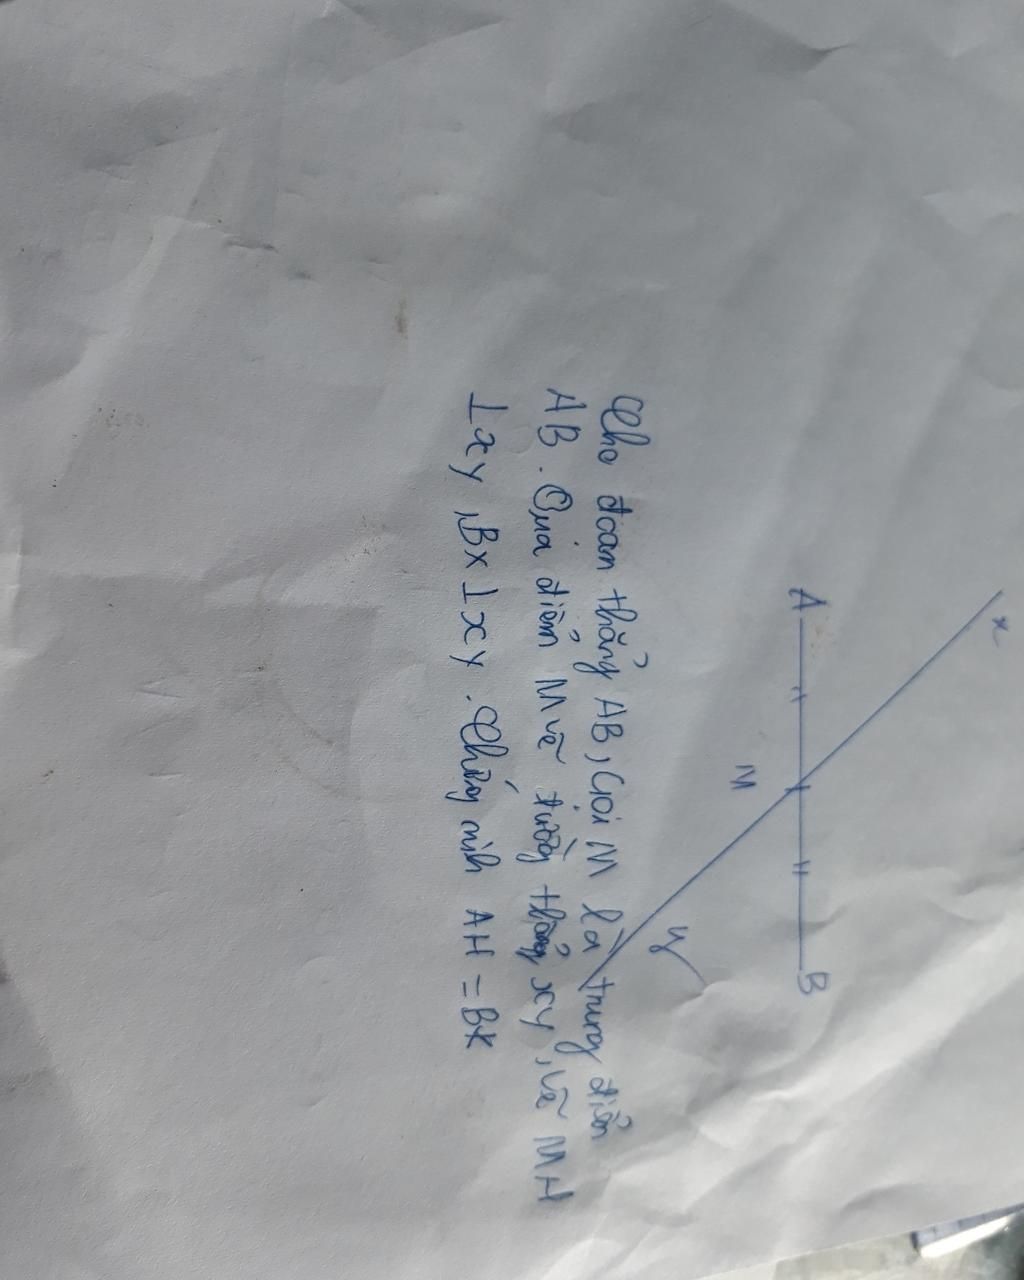 x
A
B
M
y
Cho đoạn thẳng AB, Gọi M là trung điểm
AB. Qua điểm M vẽ đường thẳng xy, vẽ MH
⊥xy, BK⊥xy. Chứng mih AH = BK